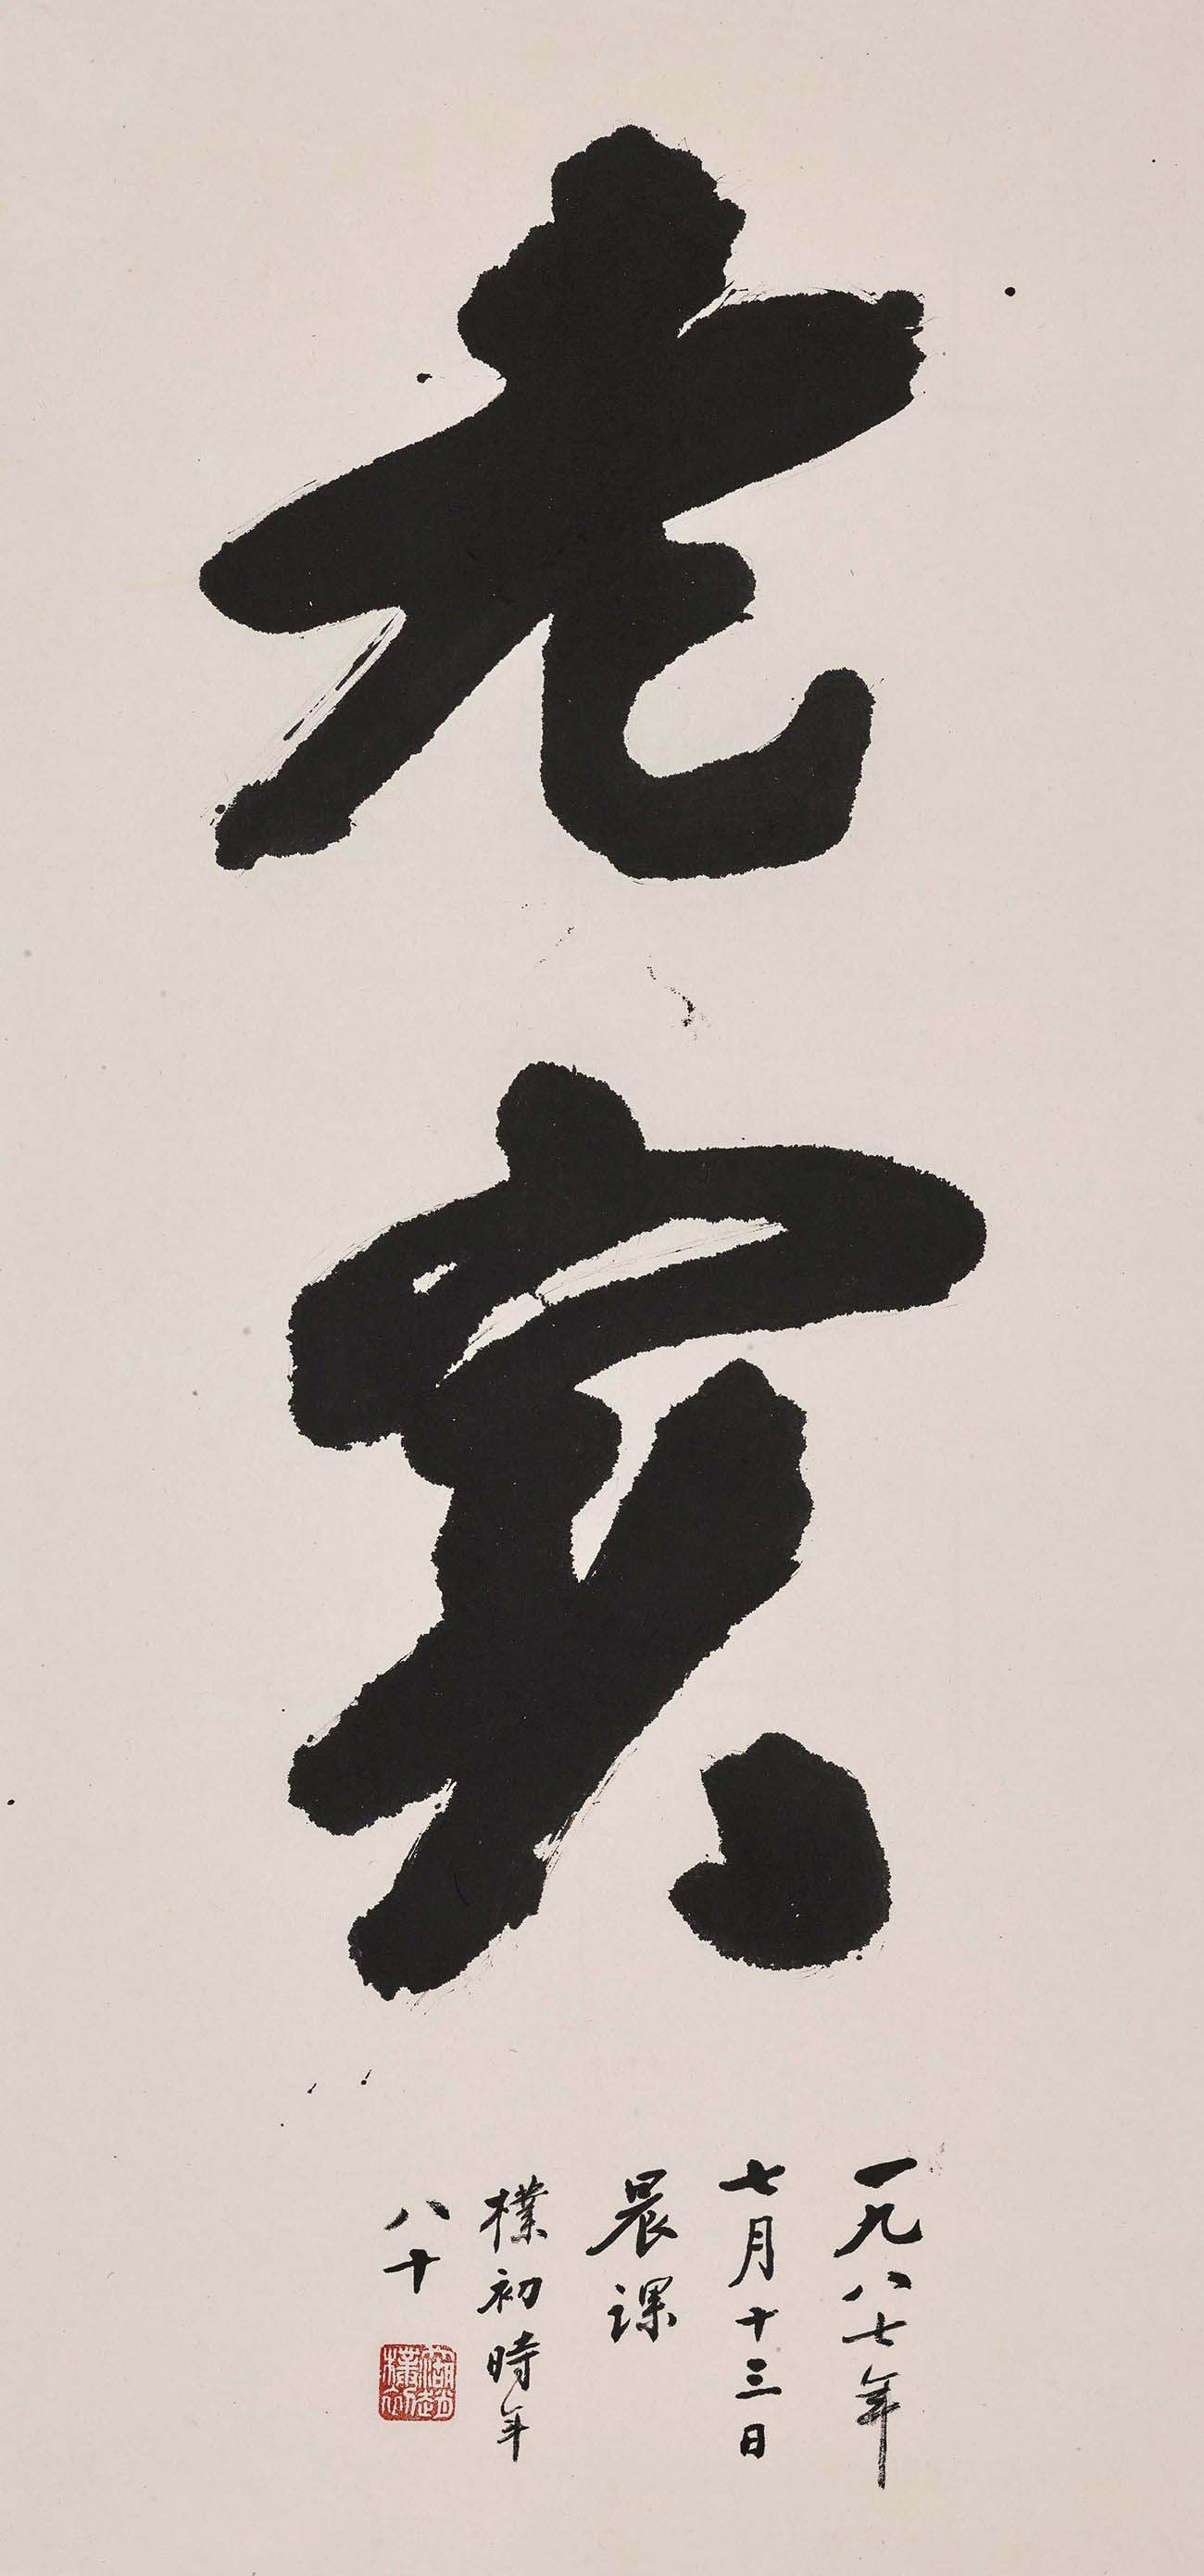 老
实
一九八七年
七月十三日
晨课
樸初時年
八十